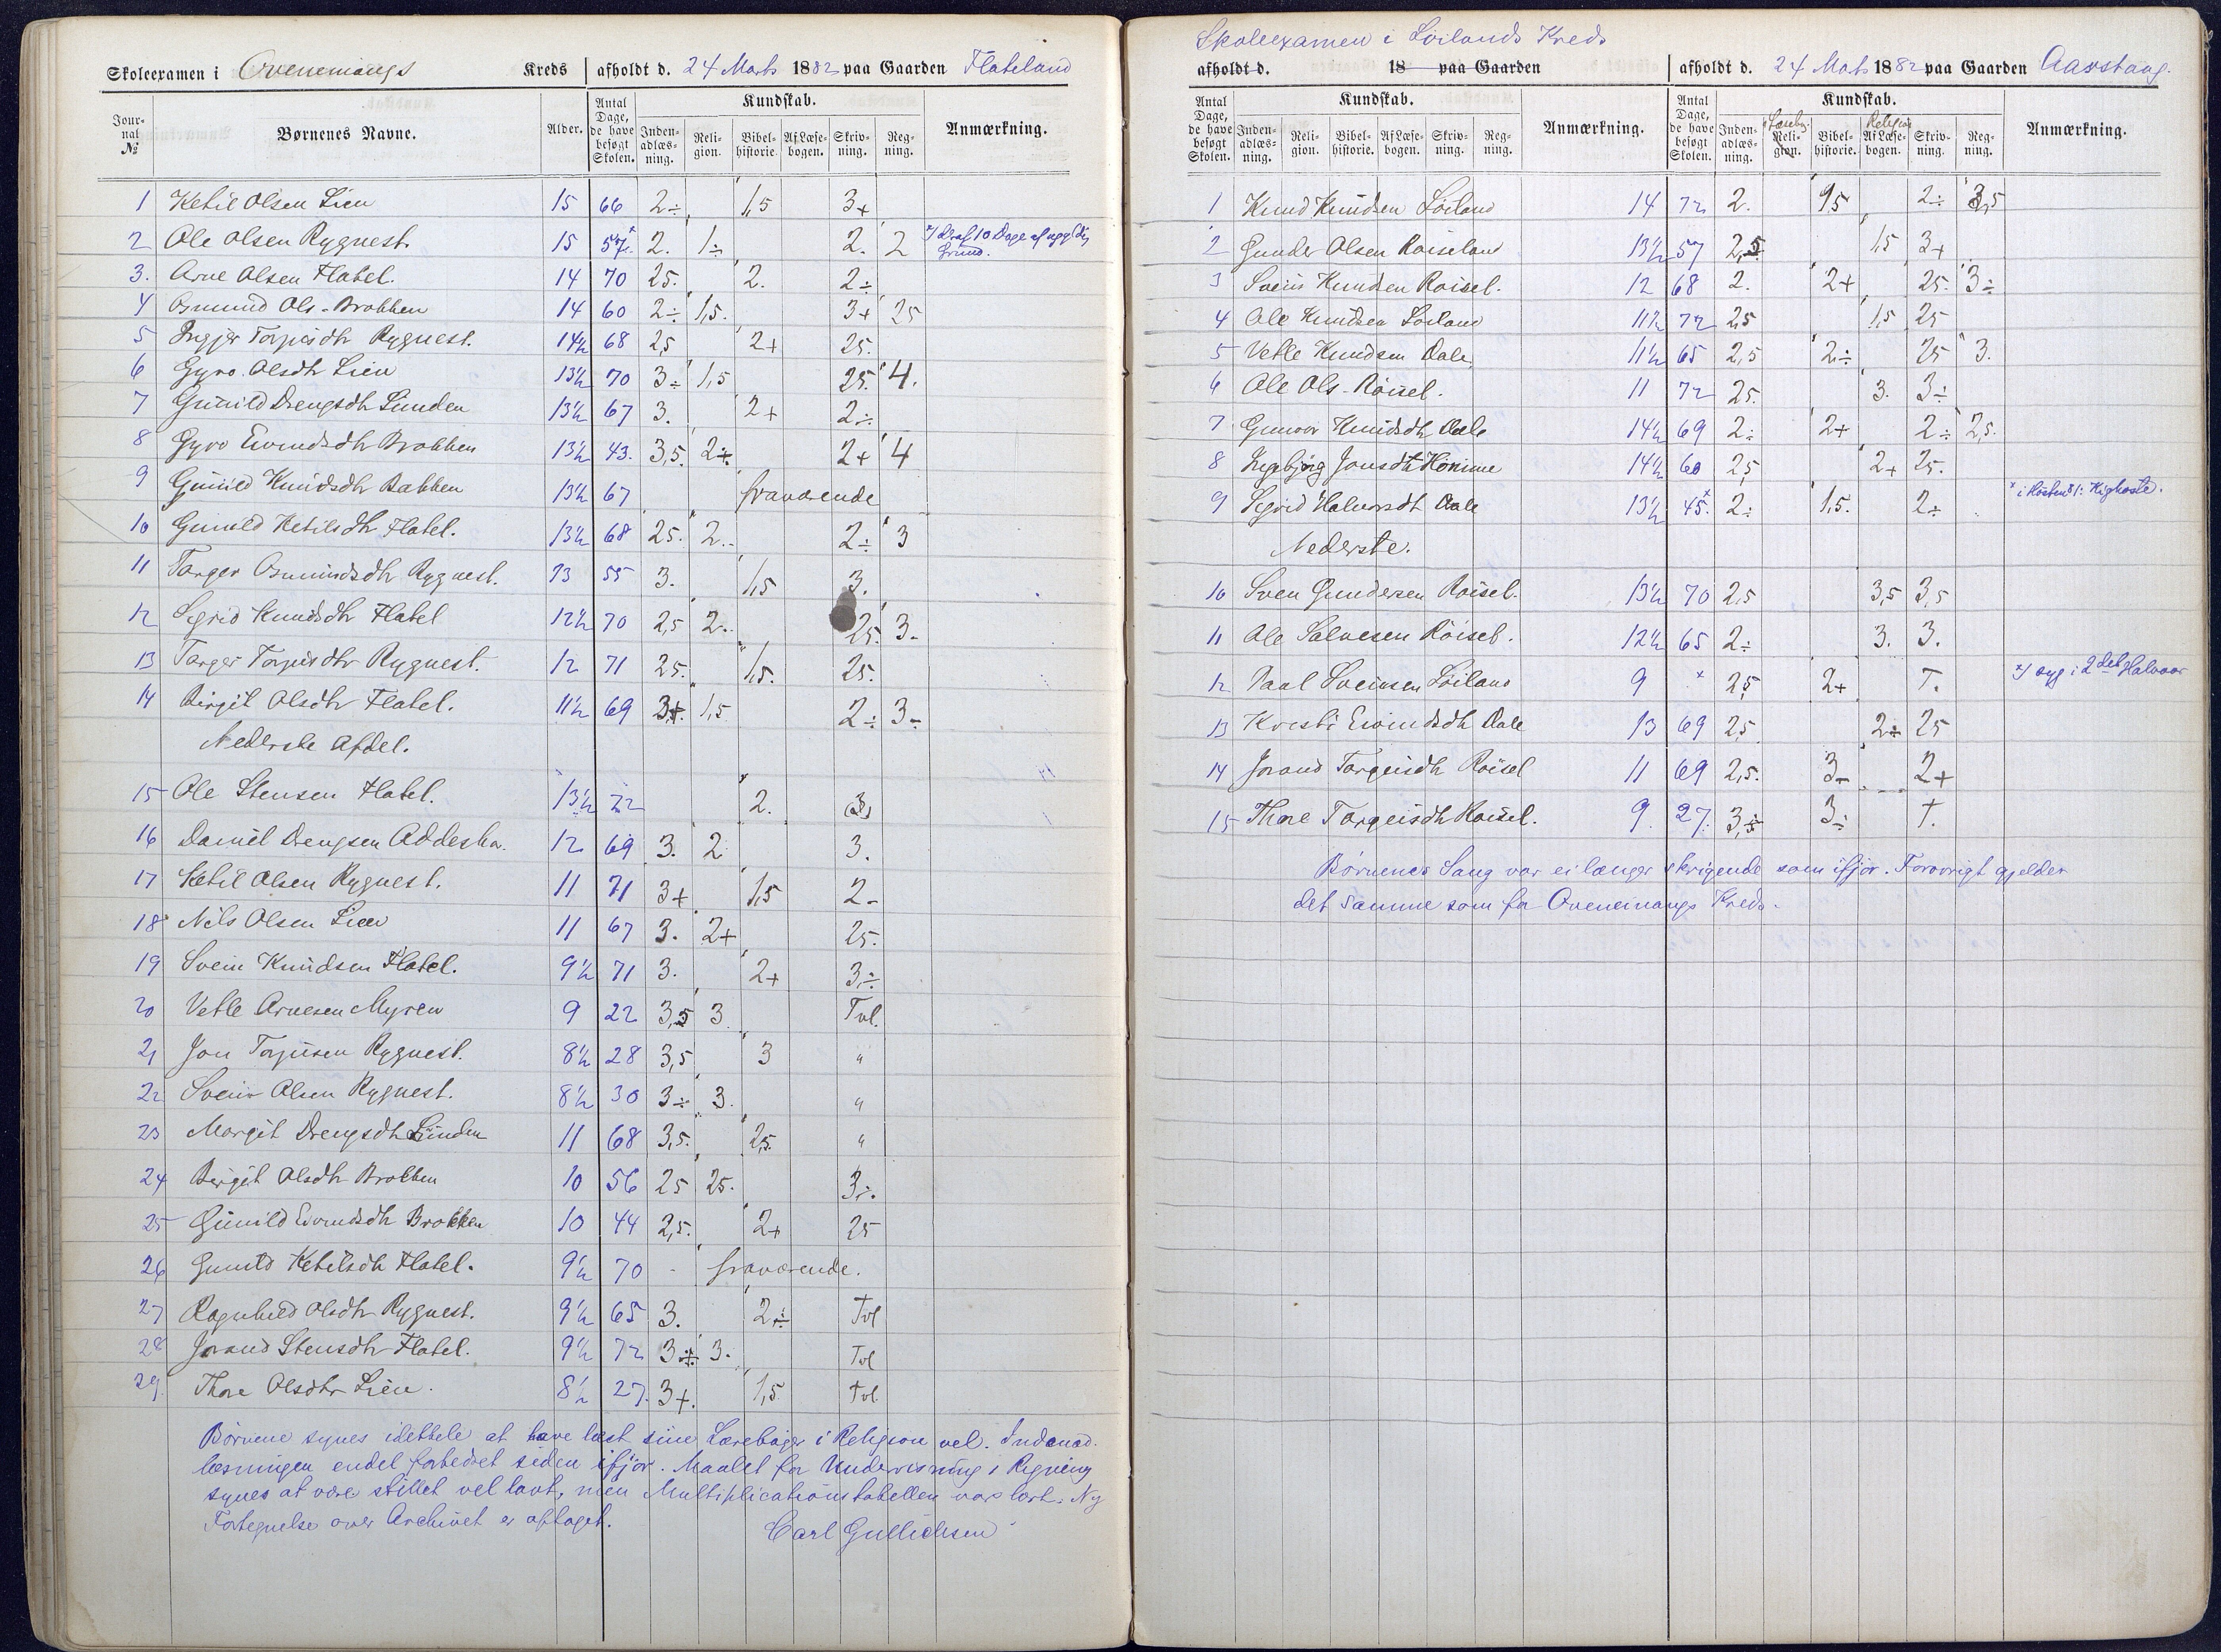 Skoleexamen i Ovenemangs Kreds afholdt d. 24 Marts 1882 paa Gaarden Flateland
Journal № Børnenes Navne. Alder. Antal Dage, de have besøgt Skolen. Kundskab. Indenadlæsning. Religion. Bibelhistorie. Af Læsebogen. Skrivning. Regning. Anmærkning.
1 Ketil Olsen Lien 15 66 2÷ 1,5 3+
2 Ole Olsen Rygnest. 15 57 2. 1÷ 2. 2
3. Arne Olsen Flatel. 14 70 25. 2. 2÷
4 Osmund Ols- Brokken 14 60 2÷ 1,5. 3+ 25
5 Torjusdtr Rygnest. 14½ 68 2,5 2+ 25.
6 Gyro Olsdtr Lien 13½ 70 3÷ 1,5 25. 4.
7 Gunild Drengsdtr Lunden 13½ 67 3. 2+ 2÷
8 Gyro Eivindsdtr Brokken 13½ 43. 3,5. 2+ 2+ 4
9 Gunild Knudsdtr Bakken 13½ 67 fraværende
10 Gunild Ketilsdtr Flatel. 13½ 68 25. 2. 2÷ 3
11 Targer Osmundsdtr Rygnest. 13 55 3. 1,5 3.
12 Sigrid Knudsdtr Flatel 12½ 70 2,5 2. 25. 3.
13 Targer Torjusdtr Rygnest. 12 71 25. 1,5. 25.
14 Birgit Olsdtr Flatel. 11½ 69 3+. 1,5 2÷ 3-
Nederste Afdel.
15 Ole Stensen Flatel. 13½ 72 2. 3
16 Daniel Drengsen 12 69 3. 2 3.
17 Ketil Olsen Rygnest. 11 71 3+ 1,5 2-
18 Nils Olsen Lien 11 67 3. 2+ 25.
19 Svein Knudsen Flatel. 9½ 71 3. 2+ 3÷
20 Vetle Arnesen Myren 9 22 3,5 3. Tvl.
21 Jon Torjusen Rygnest. 8½ 28 3,5 3 "
22 Svein Olsen Rygnest. 8½ 30 3÷ 3. "
23 Margit Drengsdtr Lunden 11 68 3,5. 2,5. "
24 Birgit Olsdtr Brokken 10 56 25 25. 3÷.
25 Gunild Eivindsdtr Brokken 10 44 2,5. 2+ 25
26 Gunild Ketilsdtr Flatel. 9½ 70 - fraværende.
27 Ragnhild Olsdtr Rygnest. 9½ 65 3. 2÷ Tvl
28 Jorand Stensdtr Flatel. 9½ 72 3÷ 3. Tvl
29 Thore Olsdtr Lien. 8½ 27. 3+. 1,5 Tvl.
Børnene synes idethele at have læst sine Lærebøger i Religion vel. Indenad-
læsningen endel forbedret siden ifjor. Maalet for Undervisning i Regning
synes at være stillet vel lavt, men Multiplicationstabellen var lært. Ny
Fortegnelse over Archivet er optaget. Carl Gullichsen
Skoleexamen i Løilands Kreds
afholdt d. 18 paa Gaarden afholdt d. 24 Mats 1882 paa Gaarden Aavstaug.
Antal Dage, de have besøgt Skolen. Kundskab. Indenadlæsning. Religion. Bibelhistorie. Af Læsebogen. Skrivning. Regning. Anmærkning. Antal Dage, de have besøgt Skolen. Kundskab. Indenadlæsning. Religion. Bibelhistorie. Religion Af Læsebogen. Skrivning. Regning. Anmærkning.
1 Knud Knudsen Løiland 14 72 2. 15 2÷ 3,5
2 Gunder Olsen Røiseland 13½ 57 2,5 1,5 3+
3 Svein Knudsen Røisel. 12 68 2. 2+ 25. 3÷
4 Ole Knudsen Løiland 11½ 72 2,5 1,5 25
5 Vetle Knudsen Dale 11½ 65 2,5 2÷ 25 3.
6 Ole Ols- Røisel. 11 72 25. 3. 3÷
7 Gunvor Knudsdtr Dale 14½ 69 2÷ 2+ 2÷ 2,5.
8 Ingebjørg Jonsdtr Homme 14½ 60 2,5 2+ 25.
9 Sigrid Halvorsdt Dale 13½ 45. 2÷ 1,5. 2÷
Nederste.
10 Sven Gundersen Røisel. 13½ 70 2,5 3,5 3,5
11 Ole Salvesen Røisel. 12½ 65 2÷ 3. 3.
12 Paal Sveinsen Løiland 9 × 2,5 2+ T. ×/ syg i 2det Halvaar
13 Kristi Eivindsdtr Dale 13 69 2,5 2÷ 25
14 Jorand Torgeisdtr Røisel 11 69 2,5. 3- 2+
15 Thore Torgeisdtr Røisel. 9. 27. 3,÷ 3÷ T.
Børnenes Sang var ei længer skrigende som ifjor. Forøvrigt gjelder
det samme som for Ovenemangs Kreds.